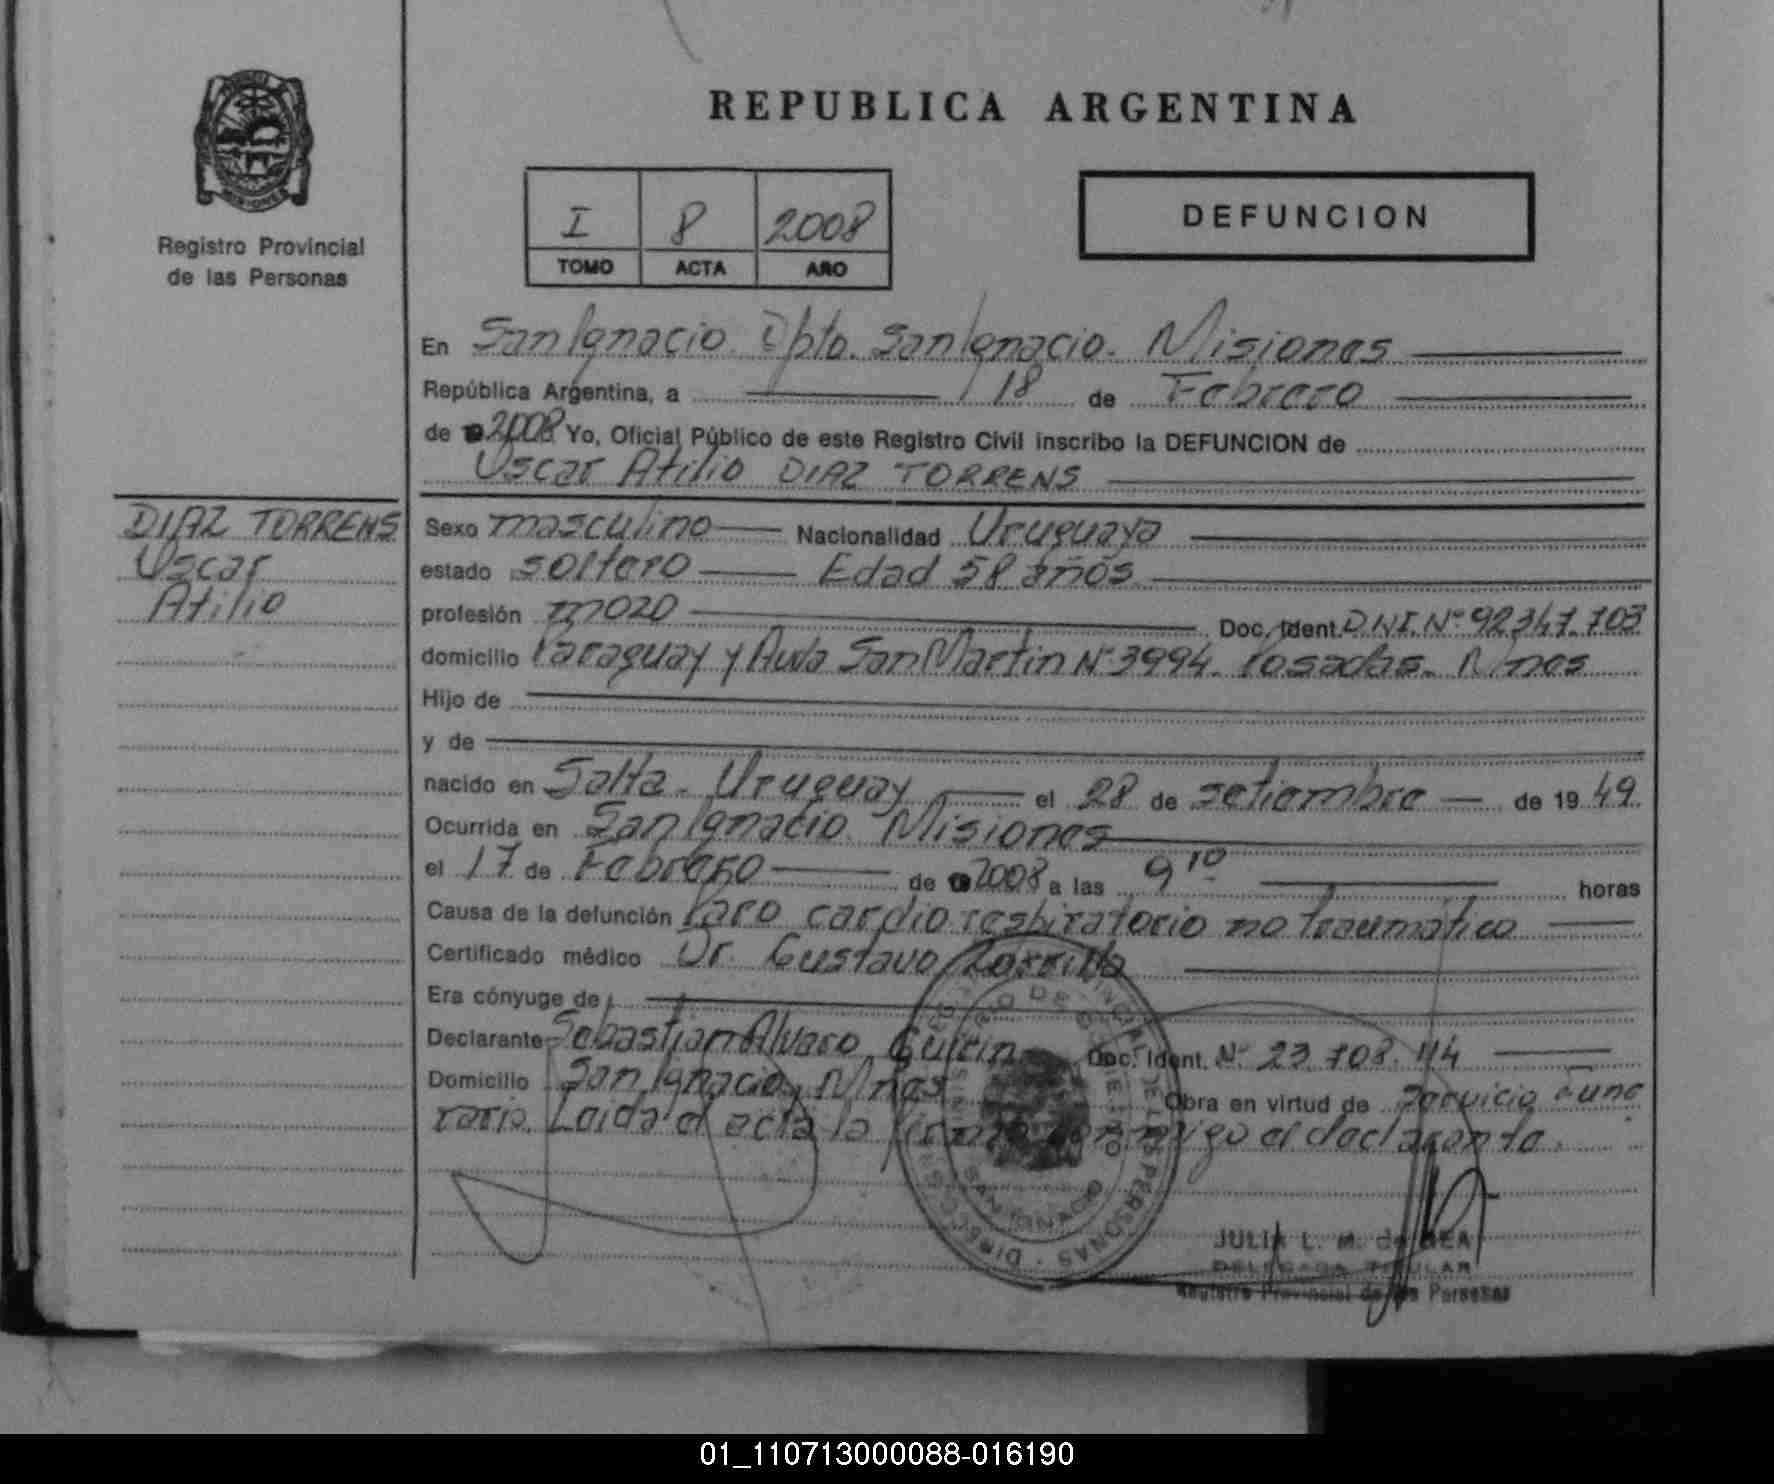 REPUBLICA ARGENTINA
MISIONES
Registro Provincial
de las Personas
I 8 2008
TOMO ACTA AÑO
DEFUNCION
En San Ignacio. Dpto. San Ignacio. Misiones
República Argentina, a 18 de Febrero
de 2008 Yo, Oficial Público de este Registro Civil inscribo la DEFUNCION de
Oscar Atilio DIAZ TORRENS
DIAZ TORRENS
Oscar
Atilio
Sexo masculino Nacionalidad Uruguaya
estado soltero Edad 58 años
profesión mozo Doc. Ident. DNI. Nº 92347.703
domicilio Paraguay y Avda San Martin Nº 3994. Posadas. Mnes
Hijo de
y de
nacido en Salta. Uruguay el 28 de setiembre de 1949.
Ocurrida en San Ignacio Misiones
el 17 de Febrero de 2008 a las 9 10 horas
Causa de la defunción Paro cardio respiratorio no traumatico
Certificado médico Dr. Gustavo Zorrilla
Era cónyuge de
Declarante Sebastian Alvaro Doc. Ident. Nº 23.708.114
Domicilio San Ignacio, Mnes Obra en virtud de Servicio Fune
rario. Leida el acta la firma conmigo el declarante.
SAN IGNACIO
JULIA L. M. de GEA
DELEGADA TITULAR
Registro Provincial de las Personas
01_110713000088-016190